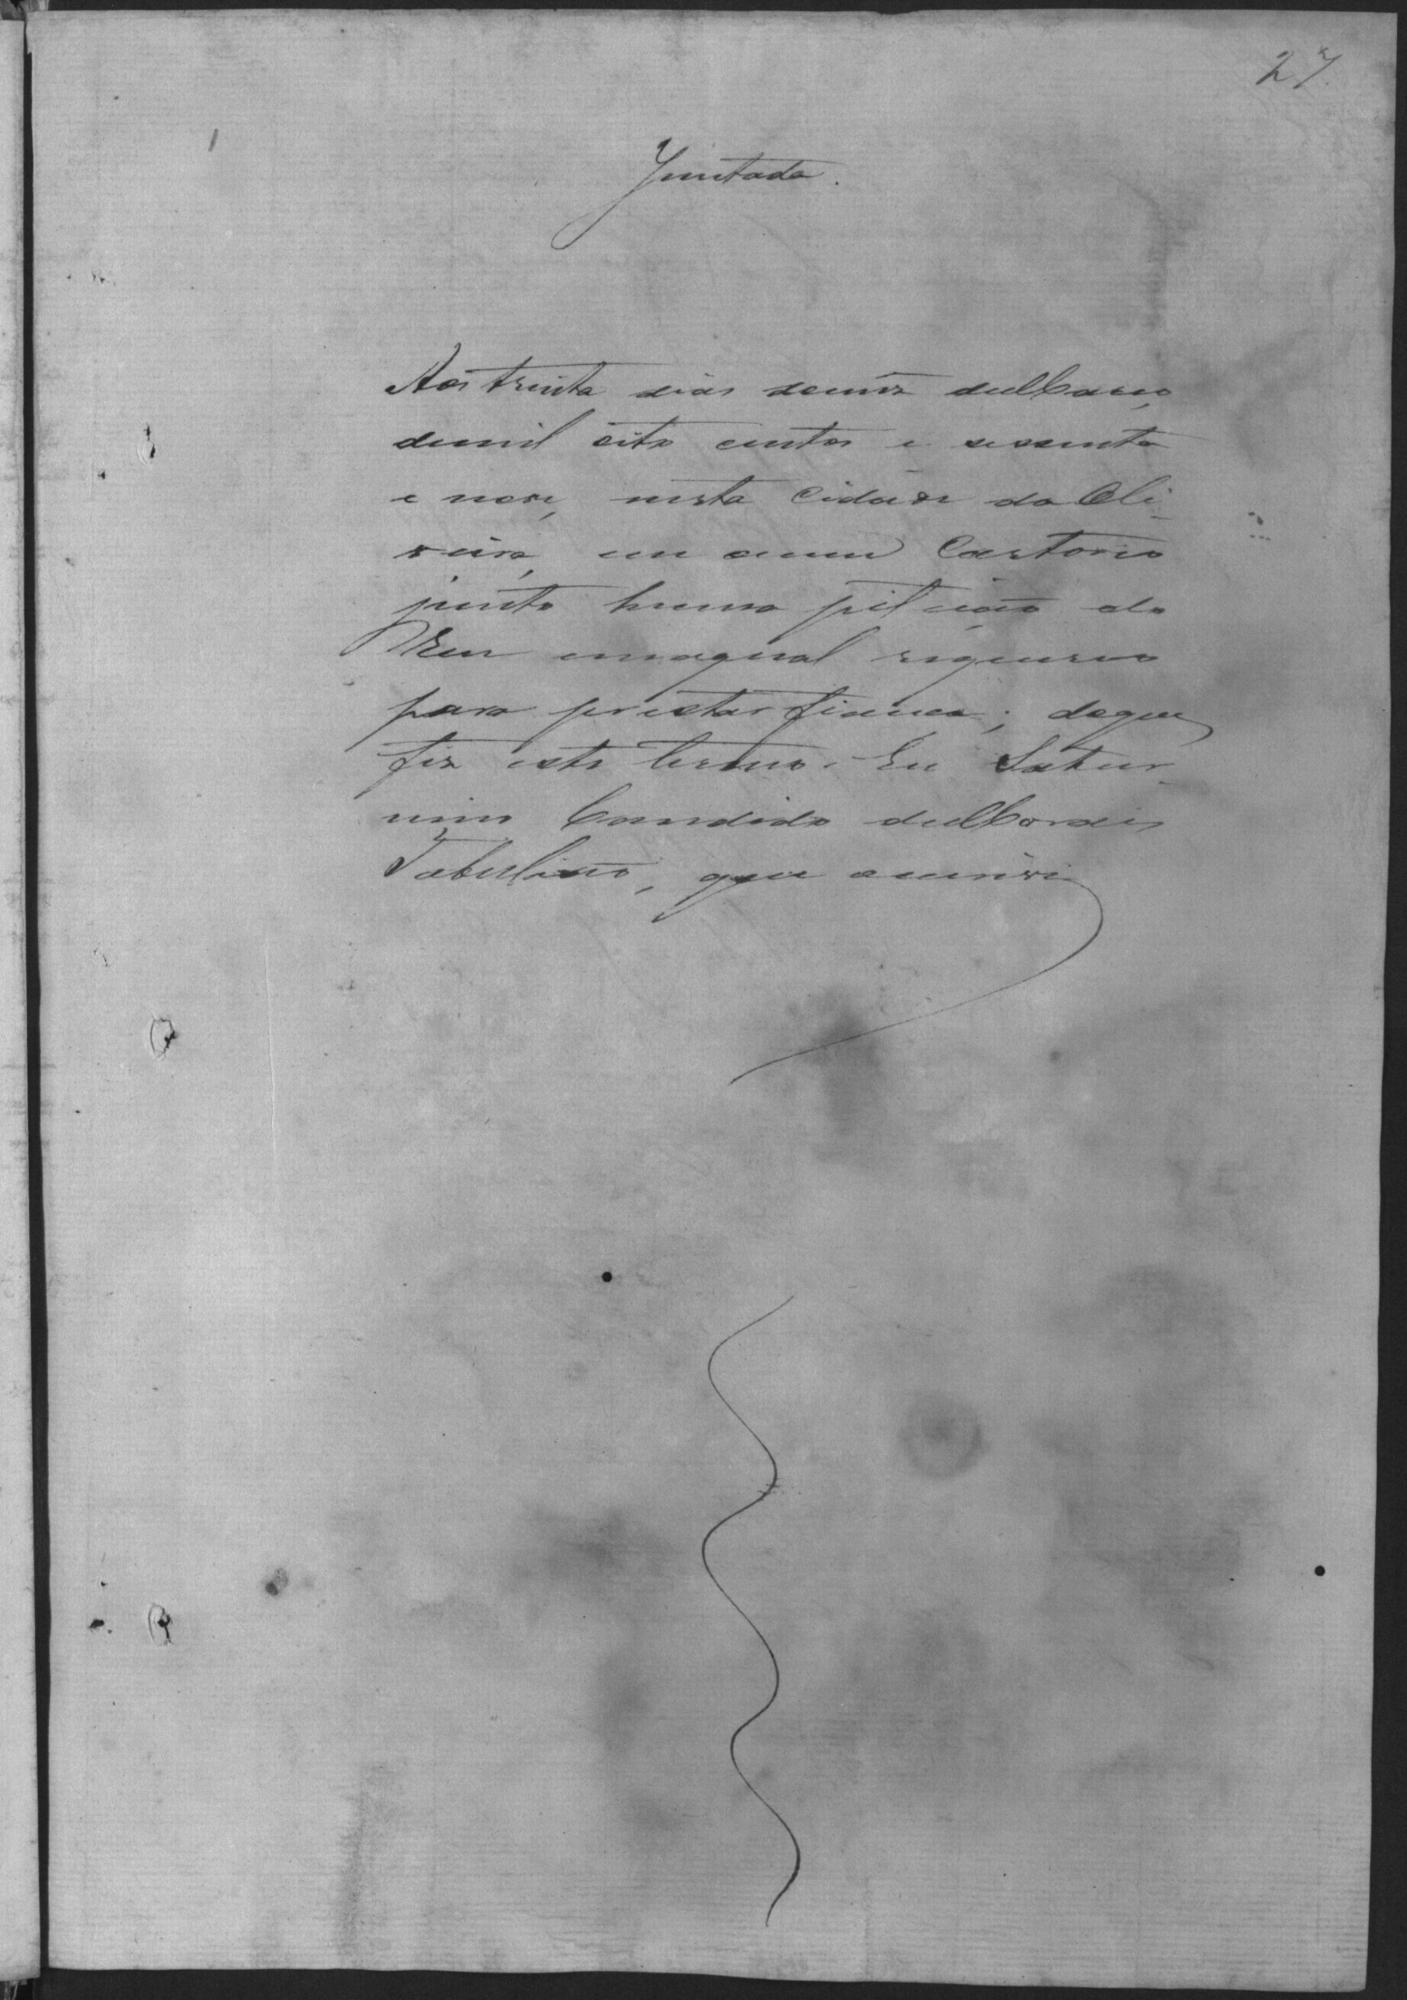 27
Juntada.
Aos trinta dias domez deMarço,
demil oito centos e secenta
e nove, nesta Cidade da Oli-
veira, em omeu Cartorio
junto huma petição do
Reu emaqual requereo
para prestar fiança; doque
fiz este termo. Eu Satur-
nino Candido deMoraes
Tabelliaõ, que oescrevi